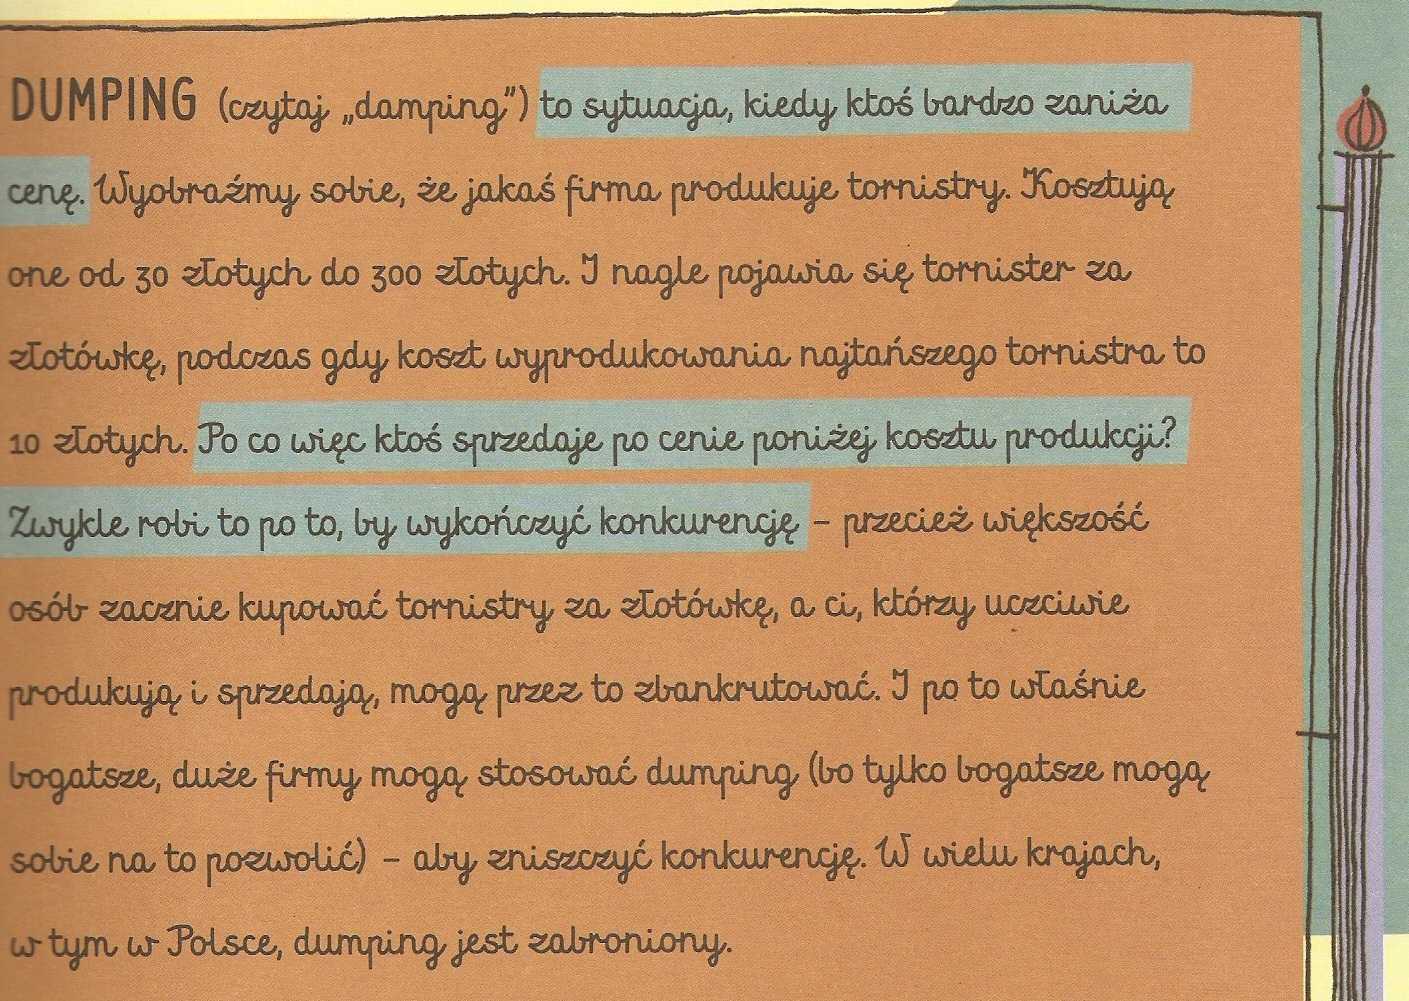 DUMPING (czytaj „damping”) to sytuacja, kiedy ktoś bardzo zaniża
cenę. Wyobraźmy sobie, że jakaś firma produkuje tornistry. Kosztują
one od 30 złotych do 300 złotych. I nagle pojawia się tornister za
złotówkę, podczas gdy koszt wyprodukowania najtańszego tornistra to
10 złotych. Po co więc ktoś sprzedaje po cenie poniżej kosztu produkcji?
Zwykle robi to po to, by wykończyć konkurencję – przecież większość
osób zacznie kupować tornistry za złotówkę, a ci, którzy uczciwie
produkują i sprzedają, mogą przez to zbankrutować. I po to właśnie
bogatsze, duże firmy mogą stosować dumping (bo tylko bogatsze mogą
sobie na to pozwolić) – aby zniszczyć konkurencję. W wielu krajach,
w tym w Polsce, dumping jest zabroniony.